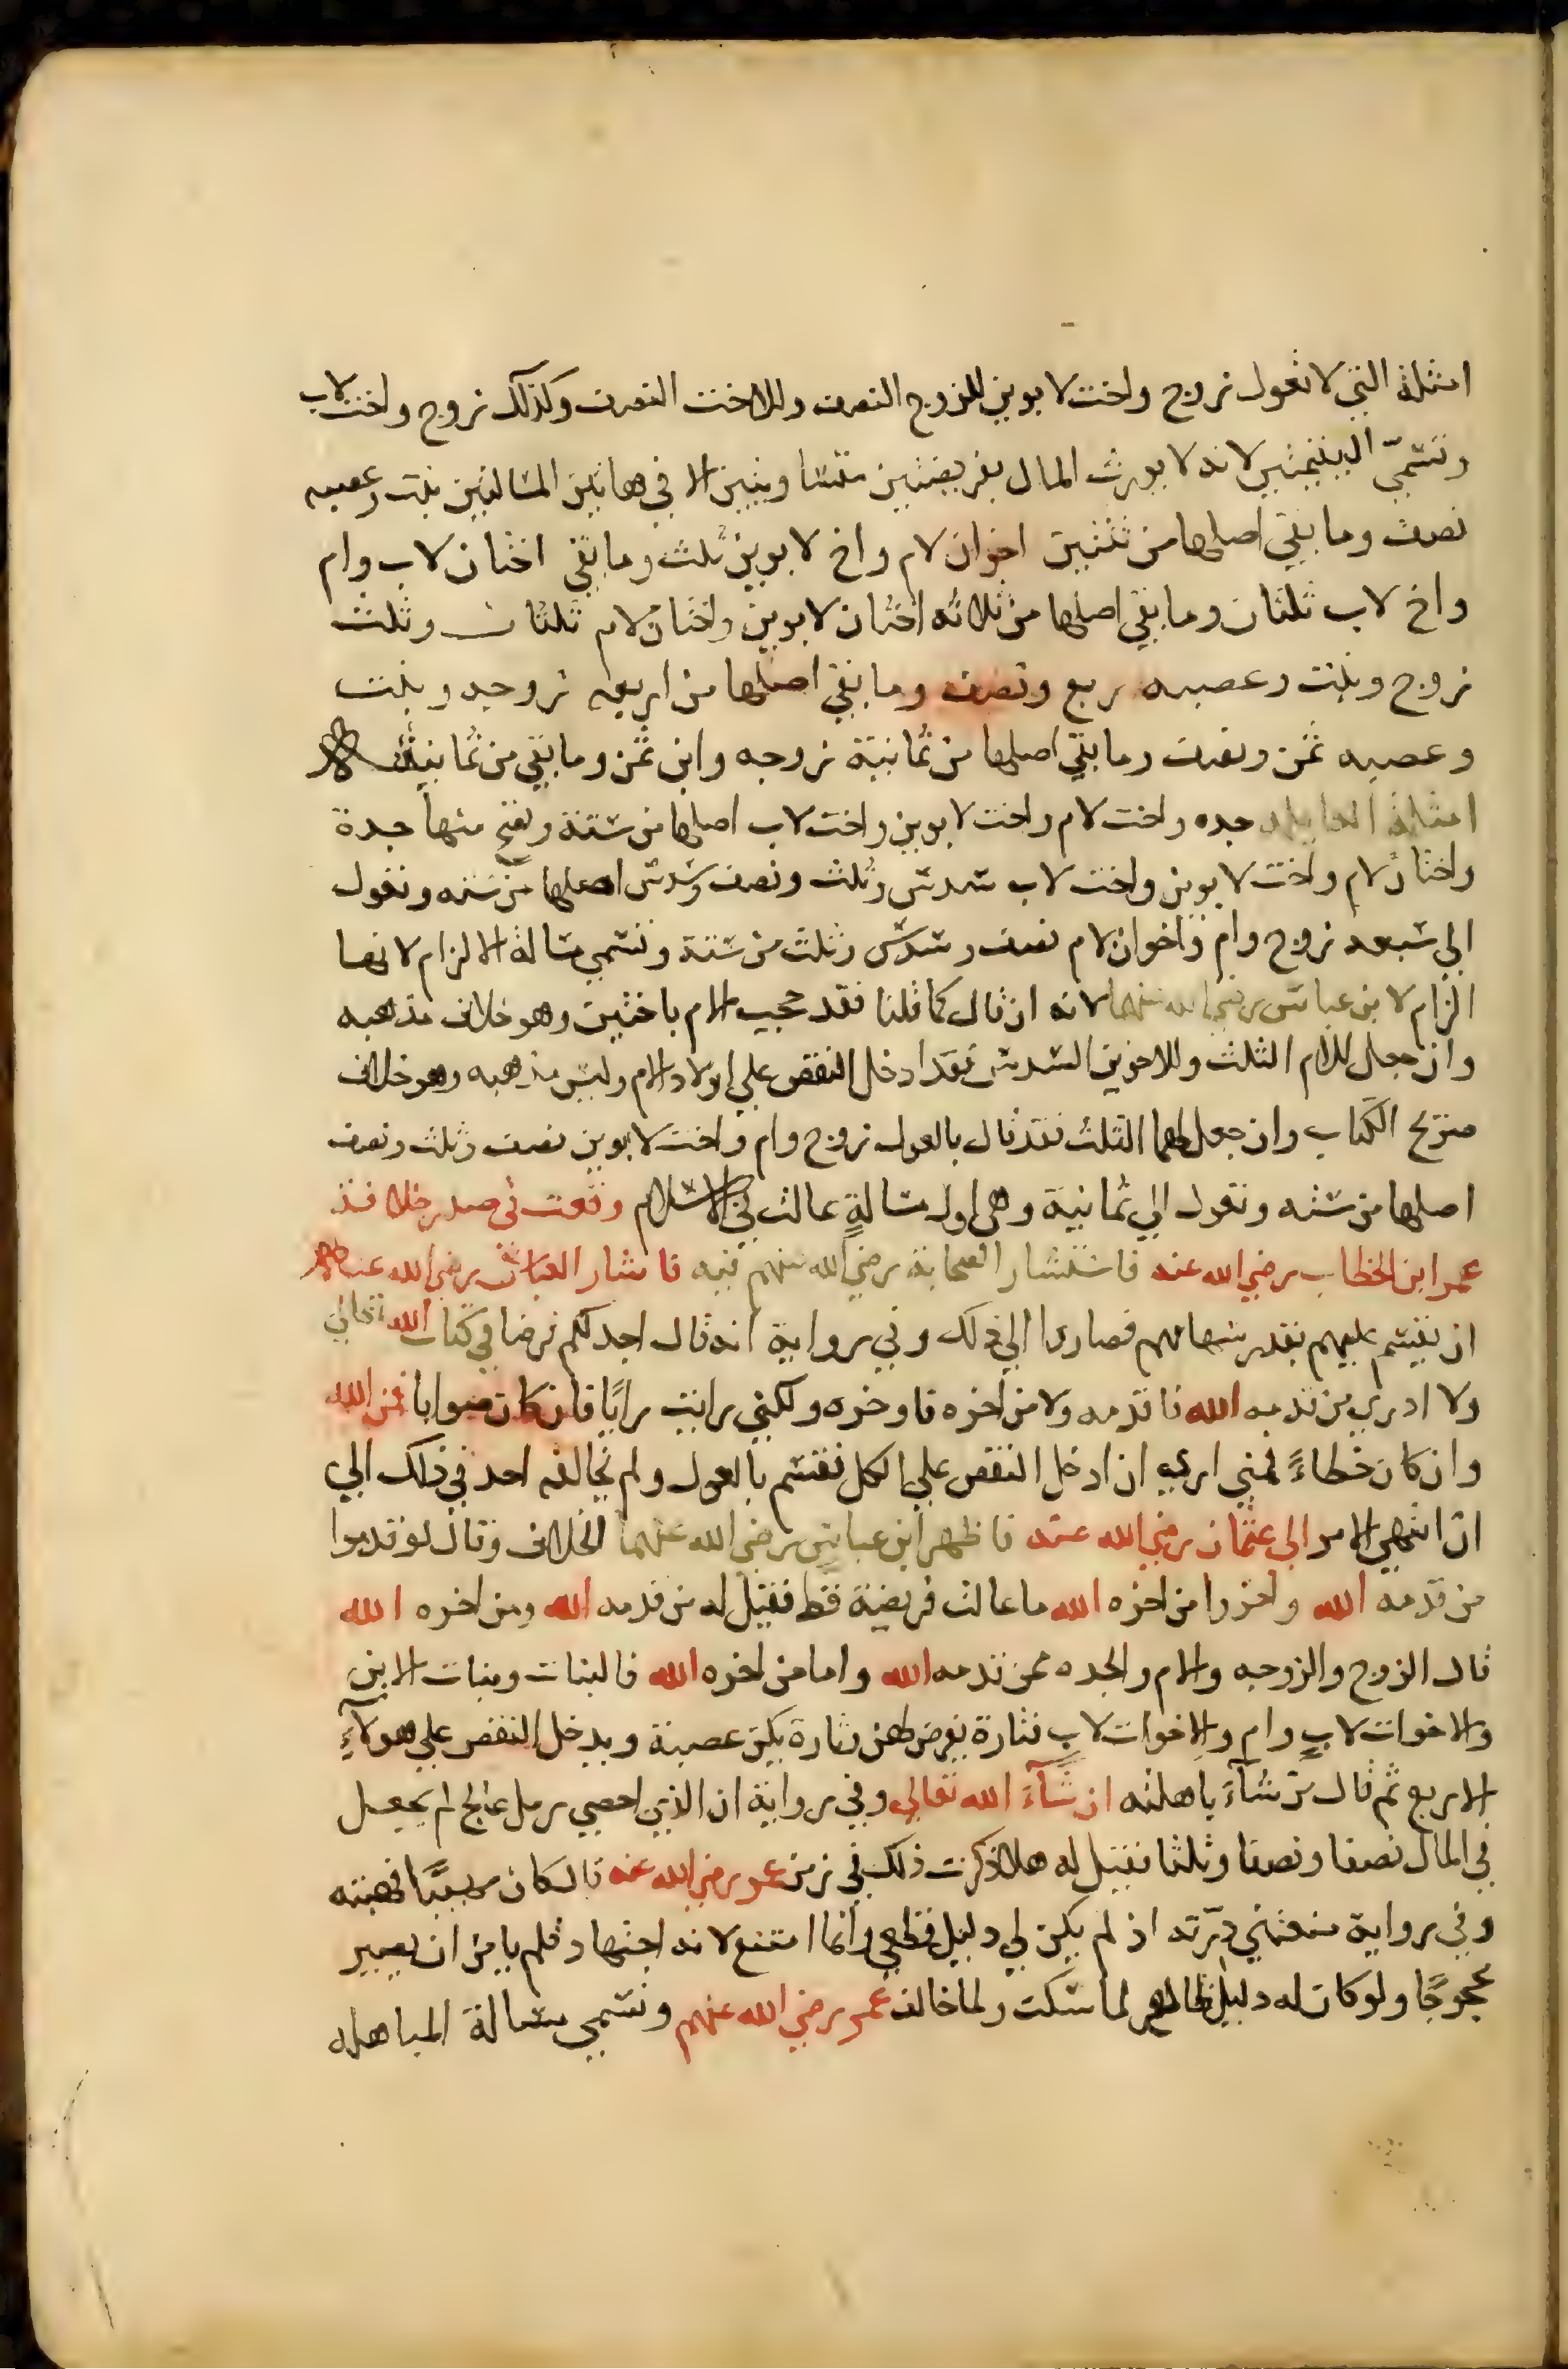 امثلة التي لا تعول زوج واخت لابوين للزوج النصف وللاخت النصف وكذلك زوج واخت لاب
وتسمي اليتيمتين لانه لا يورث المال بفريضتين متساويتين الا في هاتين المسالتين بنت وعصبه
نصف وما بقي اصلها من ثنتين اخوان لام واخ لابوين ثلث وما بقي اختان لاب وام
واخ لاب ثلثان وما بقي اصلها من ثلاثه اختان لابوين واختان لام ثلثان وثلث
زوج وبنت وعصبه ربع ونصف وما بقي اصلها من اربعه زوجه وبنت
وعصبه ثمن ونصف وما بقي اصلها من ثمانية زوجه وابن ثمن وما بقي من ثمانية
امثلة العايله جده واخت لام واخت لابوين واخت لاب اصلها من ستة وتصح منها جدة
واختان لام واخت لابوين واخت لاب سدس وثلث ونصف وسدس اصلها من سته وتعول
الي سبعه زوج وام واخوان لام نصف وسدس وثلث من ستة وتسمي مسالة الالزام لانها
الزام لابن عباس رضي الله عنهما لانه ان قال كما قلنا فقد حجب الام باختين وهو خلاف مذهبه
وان جعل للام الثلث وللاخوين السدس فقد ادخل النقص علي اولاد الام وليس مذهبه وهو خلاف
صريح الكتاب وان جعل لهما الثلث فقد قال بالعول زوج وام واخت لابوين نصف وثلث ونصف
اصلها من سته وتعول الي ثمانية وهي اول مسالةٍ عالت في الاسلام وقعت في صدر خلافة
عمر ابن الخطاب رضي الله عنه فاستشار الصحابة رضي الله عنهم فيه فاشار العباس رضي الله عنه
ان يقسم عليهم بقدر سهامهم فصاروا الي ذلك وفي رواية انه قال اجد لكم فرضا في كتاب الله تعالي
ولا ادري من قدمه الله فاقدمه ولا من اخره فاوخره ولكني رايت رايًا فان كان صوابا فمن الله
وان كان خطاءً فمني اري ان ادخل النقص علي الكل فقسم بالعول ولم يخالفه احد في ذلك الي
ان انتهي الامر الي عثمان رضي الله عنه فاظهر ابن عباس رضي الله عنهما الخلاف وقال لو قدموا
من قدمه الله واخروا من اخره الله ما عالت فريضة قط فقيل له من قدمه الله ومن اخره الله
قال الزوج والزوجه والام والجده ممن قدمه الله واما من اخره الله فالبنات وبنات الابن
والاخوات لابٍ وام والاخوات لاب فتارة يفرض لهن وتارة يكن عصبة ويدخل النقص علي هولآءِ
الاربع ثم قال من شآءَ باهلته ان شآءَ الله تعالي وفي رواية ان الذي احصي رمل عالج لم يجعل
في المال نصفا ونصفا وثلثا فقيل له هلا ذكرت ذلك في زمن عمر رضي الله عنه قال كان مهيبًا فهبته
وفي رواية منعتني درّته اذ لم يكن لي دليل قطعي وانما امتنع لانه اجتهاد فلم يامن ان يصير
محجوجًا ولو كان له دليل ظاهر لما سكت ولما خالف عمر رضي الله عنهم وتسمي مسالة المباهله